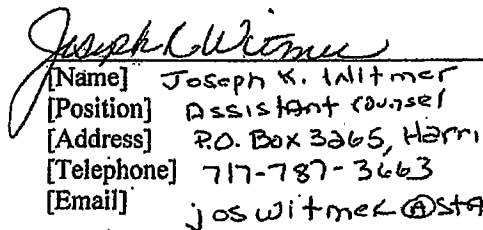 Joseph K Witmer
[Name] Joseph K. Witmer
[Position] Assistant Counsel
[Address] P.O. Box 3265, Harri
[Telephone] 717-787-3663
[Email] joswitmer@sta